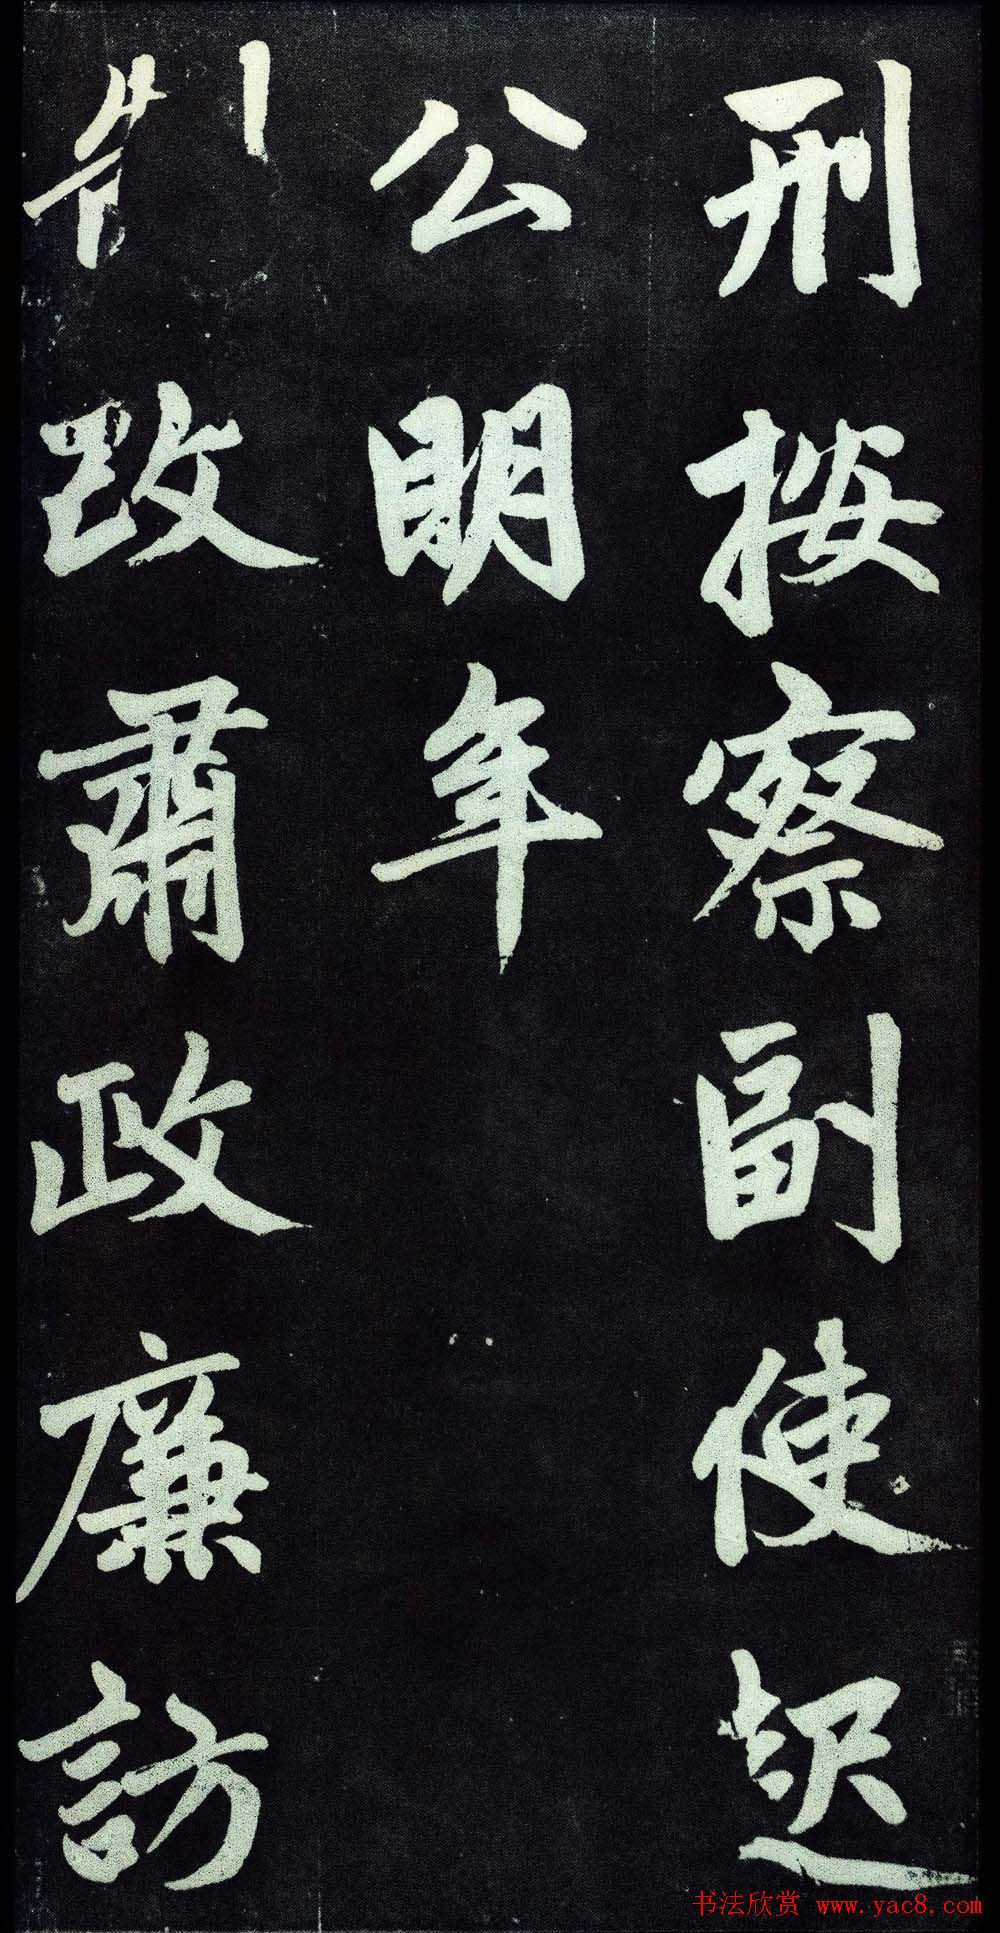 刑按察副使起
公明年
制改肅政廉訪
书法欣赏 www.yac8.com